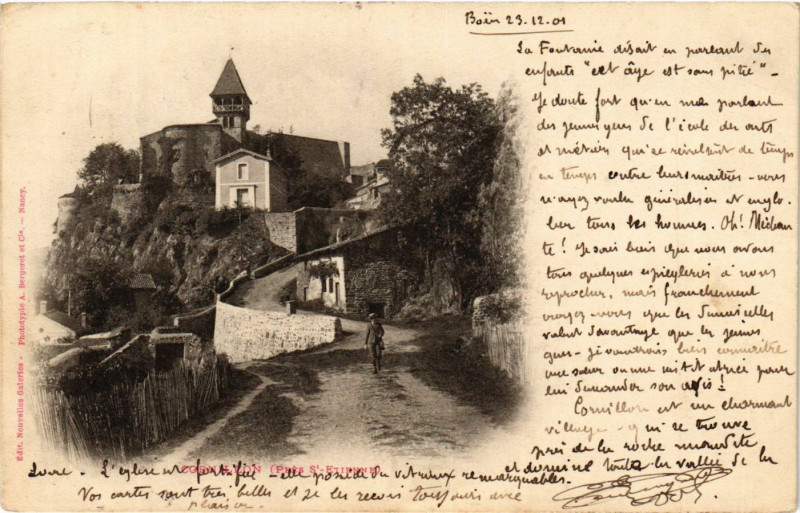 Boën 23.12.01
La Fontaine disait en parlant des
enfants "cet âge est sans pitié" -
Je doute fort qu'en me parlant
des jeunes gens de l'école des arts
et métiers qui se révoltent de temps
en temps contre leurs maîtres - vous
n'ayez voulu généraliser et englo-
ber tous les hommes. Oh! Méchan
te! Je sais bien que nous avons
tous quelques espiègleries à nous
reprocher, mais franchement
croyez-vous que les demoiselles
valent davantage que les jeunes
gens - je voudrais bien connaître
une sœur ou une
lui demander son avis!
Cornillon est un charmant
village - qui se trouve
près de la roche
et domine toute la vallée de la
Loire. - L'église est fortifiée - elle possède du vitraux remarquables.
Vos cartes sont très belles et je les reçois toujours avec
plaisir.
CORNILLON (PRÈS St-ETIENNE)
Edit. Nouvelles Galeries - Phototypie A. Bergeret et Cie. - Nancy.